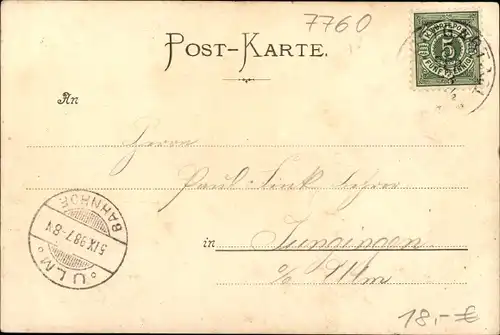 7760
POST-KARTE.
5
An
Herrn
Paul Link Lehrer
in Jungingen
o/o Ulm
BAHNHOF
5 IX 98 7-8 N
ULM
18,- €